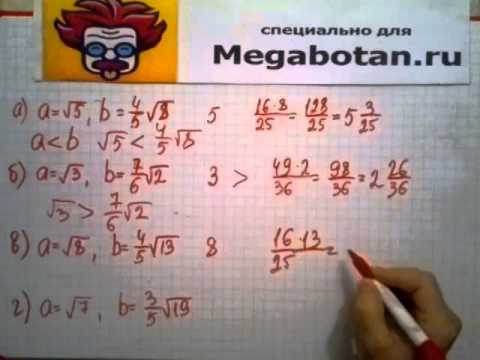 специально для
Megabotan.ru
а) a=√5, b=4/5√8 5 16·8/25=128/25=5 3/25
a<b √5<4/5√b
б) a=√3, b=7/6√2 3 > 49·2/36=98/36=2 26/36
√3>7/6√2
в) a=√8, b=4/5√13 8 16·13/25=
г) a=√7, b=3/5√19